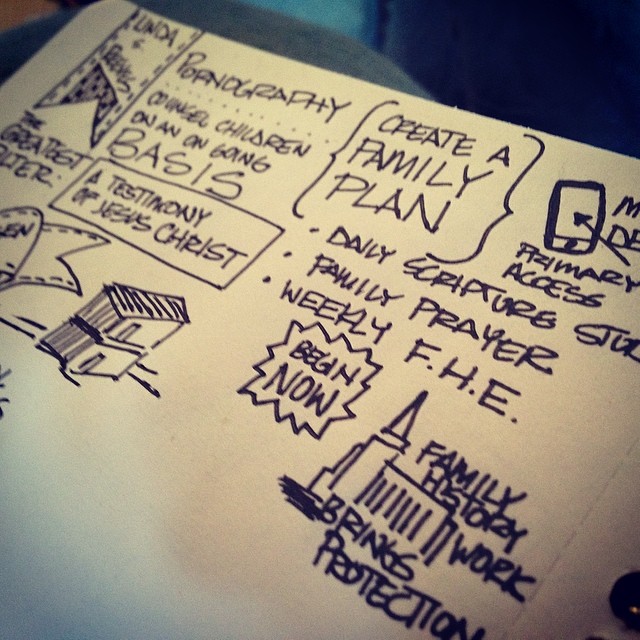 LINDA
PORNOGRAPHY
COUNSEL CHILDREN
ON AN ON GOING
BASIS
THE
GREATEST
FILTER:
A TESTIMONY
OF JESUS CHRIST
CREATE A
FAMILY
PLAN
• DAILY SCRIPTURE STU
• FAMILY PRAYER
• WEEKLY F.H.E.
BEGIN
NOW
M
DE
PRIMARY
ACCESS
FAMILY
HISTORY
WORK
BRINGS
PROTECTION